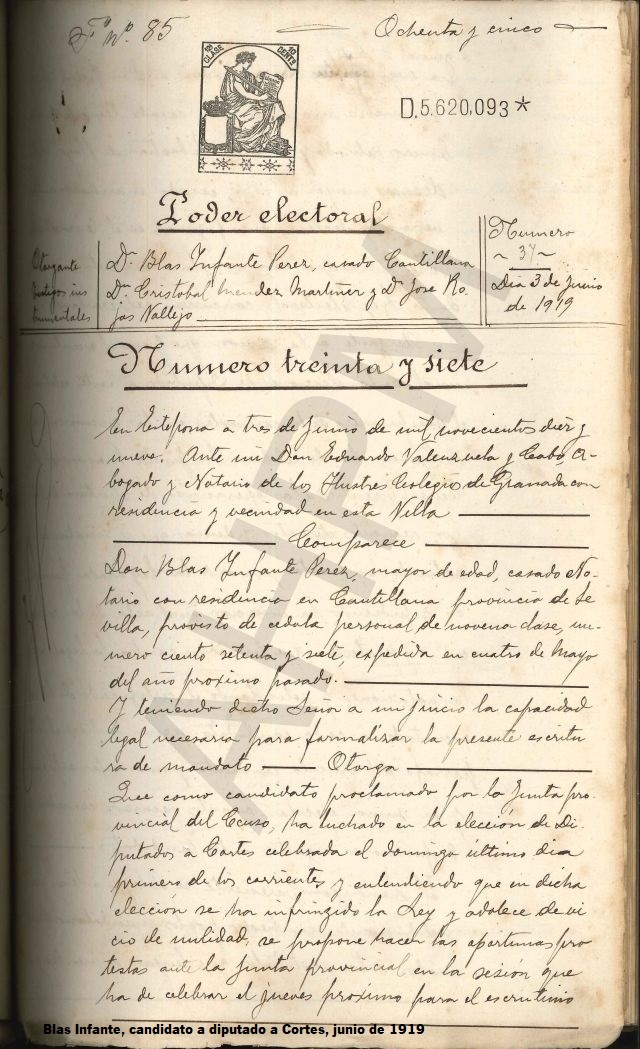 Fº nº 85
Ochenta y cinco
12ª CLASE 10 CENTS
D.5.620,093*
Poder electoral
Numero
~ 37 ~
Dia 3 de Junio
de 1919
Otorgante
Testigos ins
trumentales
Dn. Blas Infante Perez, casado Cantillana
Dn. Cristobal Mendez Martiner y Dn Jose Ro-
jas Vallejo
Numero treinta y siete
En Estepona á tres de Junio de mil novecientos diez y
nueve. Ante mi Don Eduardo Valenzuela y Cabo, A-
bogado y Notario de los Ilustres Colegio de Granada con
residencia y vecindad en esta Villa
Comparece
Don Blas Infante Perez, mayor de edad, casado No-
tario con residencia en Cantillana provincia de Se
villa, provisto de cedula personal de novena clase, nu-
mero ciento setenta y siete, expedida en cuatro de Mayo
del año proximo pasado.
Y teniendo dicho Señor a mi juicio la capacidad
legal necesaria para formalizar la presente escritu
ra de mandato — Otorga
Que como candidato proclamado por la Junta pro-
vincial del Censo, ha luchado en la elección de Di-
putados a Cortes celebrada el domingo último dia
primero de los corrientes, y entendiendo que en dicha
elección se ha infringido la Ley y adolece de vi
cio de nulidad, se propone hacer las oportunas pro
testas ante la Junta provincial en la sesión que
ha de celebrar el jueves próximo para el escrutinio
AHPM
Blas Infante, candidato a diputado a Cortes, junio de 1919